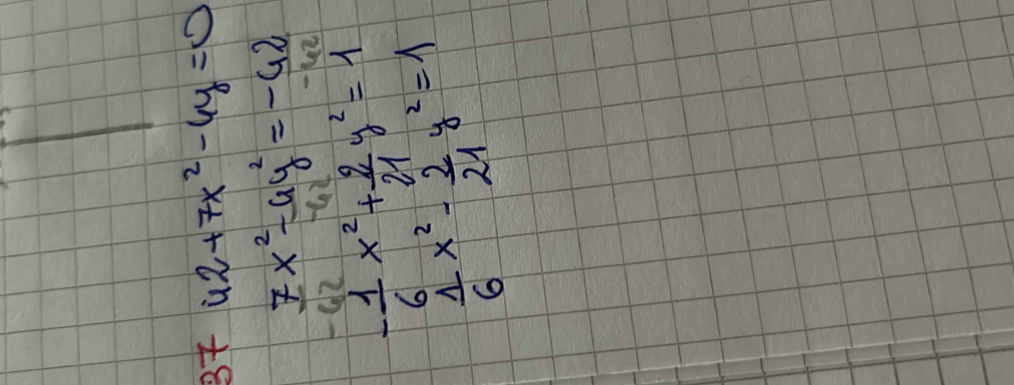 37 42+7x²-4y=0
7x²-4y²=-42
-42 -42 -42
-1/6 x²+2/21 y²=1
1/6 x²-2/21 y²=1